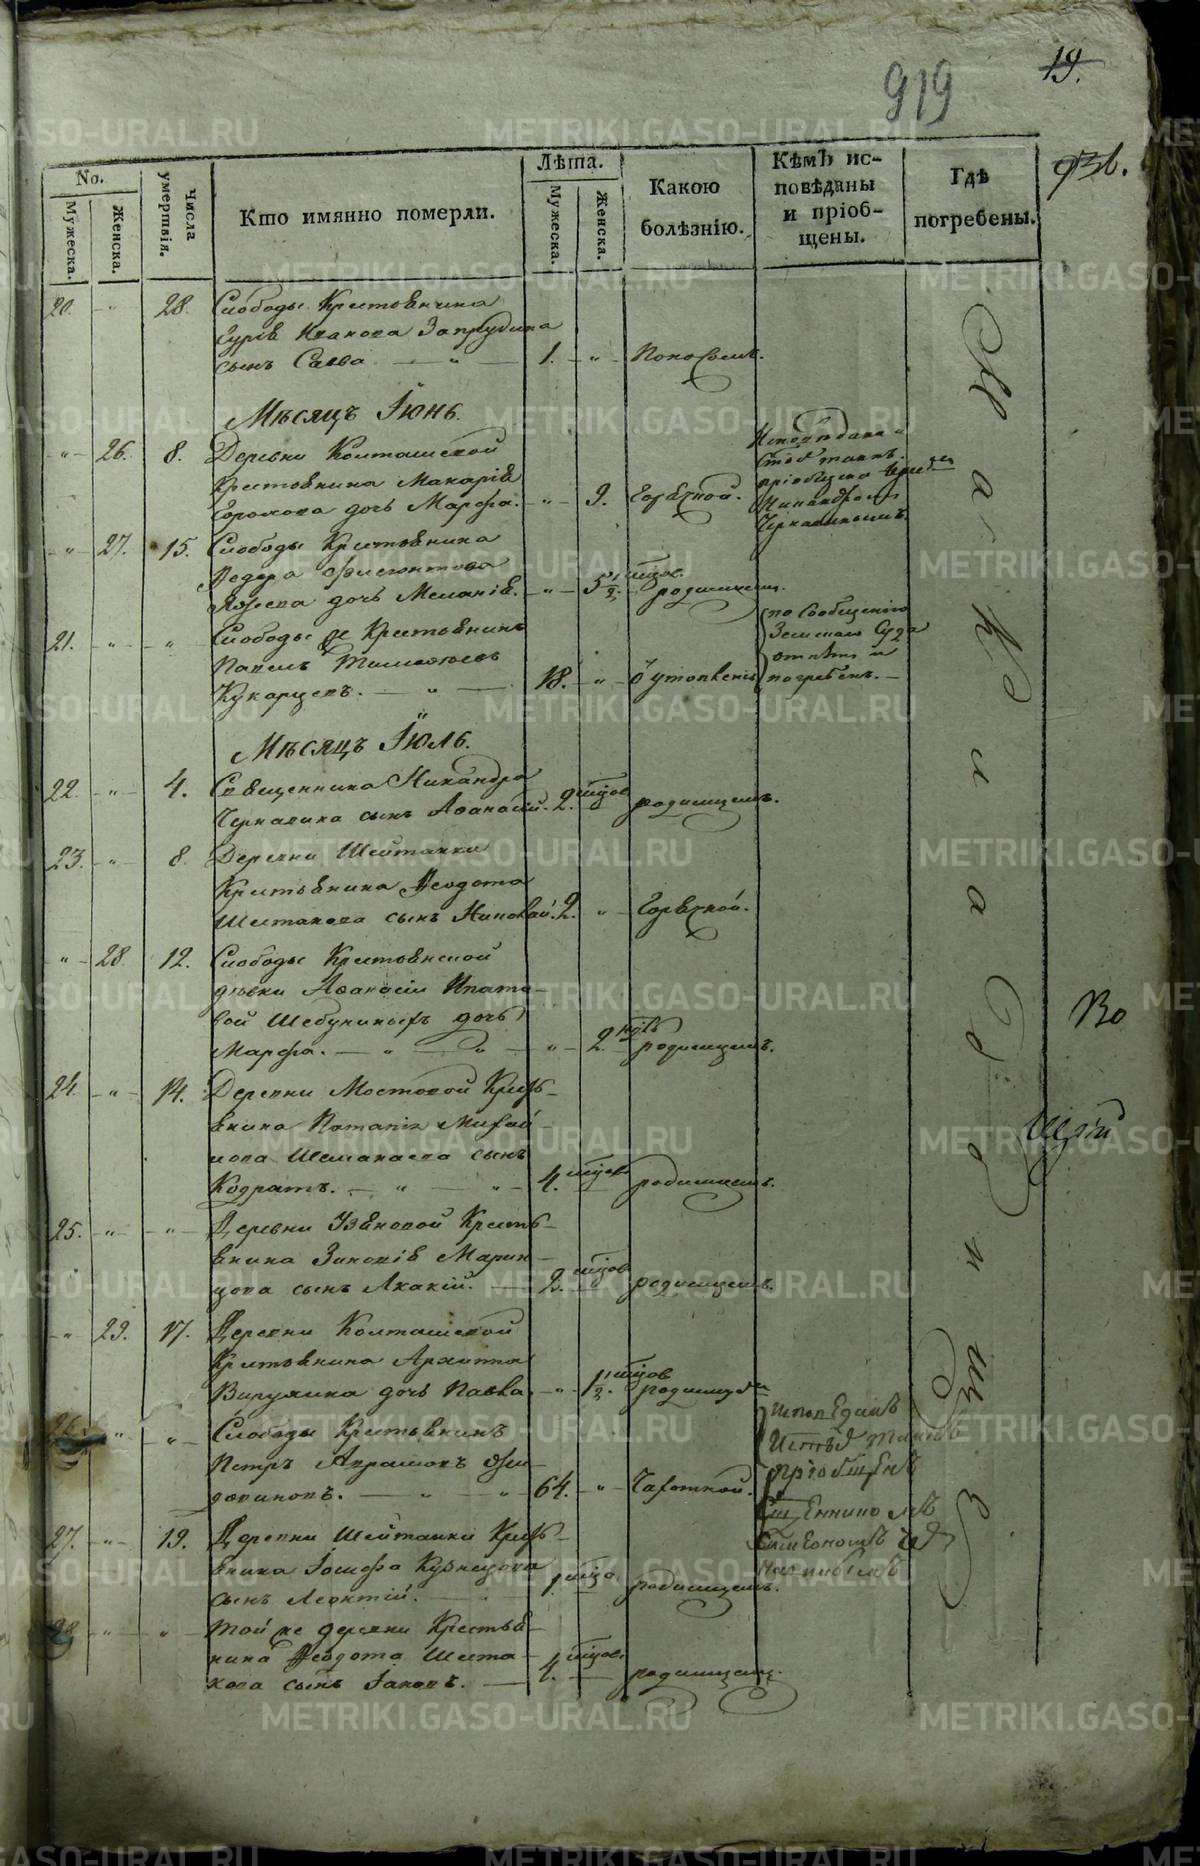 19.
919
936.
No.
Мужеска.
Женска.
Числа умертвія.
Кто имянно померли.
Лѣта.
Мужеска.
Женска.
Какою болѣзнію.
Кѣмъ исповѣданы и пріобщены.
Гдѣ погребены.
20. - „ - 28. Слободы Крестьянина
Гурія Иванова Запрудина
сынъ Савва — „ — 1. - „ - Поносомъ.
Мѣсяцъ Іюнь.
- „ - 26. 8. Деревни Колташевской
Крестьянина Макарія
дочь Марфа. - „ - 9. Горячкой.
Исповѣдана и
Св. таин.
пріобщена
Никандромъ
- „ - 27. 15. Слободы Крестьянина
Федора
дочь Меланія. - „ - 5 1/2 мѣцов. родимцем.
21. - „ - „ - Слободы же Крестьянинъ
Павелъ Тимофеевъ
Кукарцевъ. — „ — 18. - „ - утопленіе
по Сообщенію
Земскаго Суда
отпѣтъ и
погребенъ. —
Мѣсяцъ Іюль.
22. - „ - 4. Священника Никандра
сынъ Афанасій. 2. мѣцов родимцемъ.
23. - „ - 8. Деревни Шайтанки
Крестьянина Федота
Шестакова сынъ Николай. 2. „ - Горячкой.
- „ - 28. 12. Слободы Крестьянской
дѣвки Афанасіи Ипато-
вой Шебуниныхъ дочь
Марфа. — „ — „ - „ - 2. нед родимцемъ.
24. - „ - 14. Деревни Мостовой Кресть-
янина Потапія Михай-
лова сынъ
Кодратъ. — „ — „ - 4. мѣцов родимцемъ.
25. - „ - „ - Деревни Узяновой Кресть-
янина Зиновія Марин-
цова сынъ Акакій. — 2. мѣцов родимцемъ.
- „ - 29. 17. Деревни Колташевской
Крестьянина Архипа
Вирухина дочь Павла. - „ - 1 1/2. мѣцов родимцем
26. „ - „ - Слободы Крестьянинъ
Петръ Аврамовъ
— „ — „ - 64. - „ - Чахоткой.
исповеданъ
и св таинъ
пріобщенъ
Священникомъ
Симеономъ
27. - „ - 19. Деревни Шайтанки Кресть-
янина Іосифа Кузнецова
сынъ Леонтій. — 1. мѣцо. родимцемъ.
28. - „ - „ - Той же деревни Крестья-
нина Федота Шеста-
кова сынъ Іаковъ. — 4. мѣцов. родимцем.
На Кладбищѣ
Во
METRIKI.GASO-URAL.RU